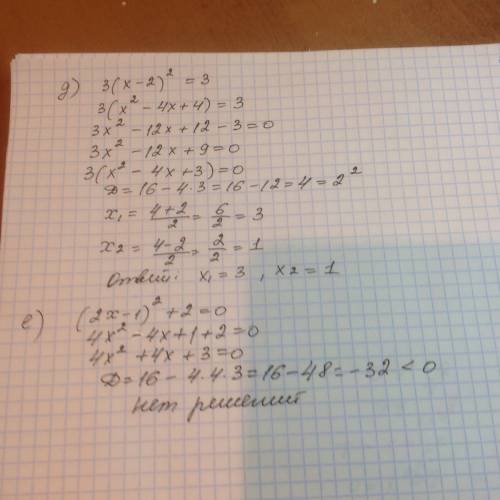 д) 3(x-2)² = 3
3(x² - 4x + 4) = 3
3x² - 12x + 12 - 3 = 0
3x² - 12x + 9 = 0
3(x² - 4x + 3) = 0
D = 16 - 4·3 = 16 - 12 = 4 = 2²
x₁ = (4+2)/2 = 6/2 = 3
x₂ = (4-2)/2 = 2/2 = 1
Ответ: x₁ = 3 , x₂ = 1
е) (2x-1)² + 2 = 0
4x² - 4x + 1 + 2 = 0
4x² + 4x + 3 = 0
D = 16 - 4·4·3 = 16 - 48 = -32 < 0
нет решений